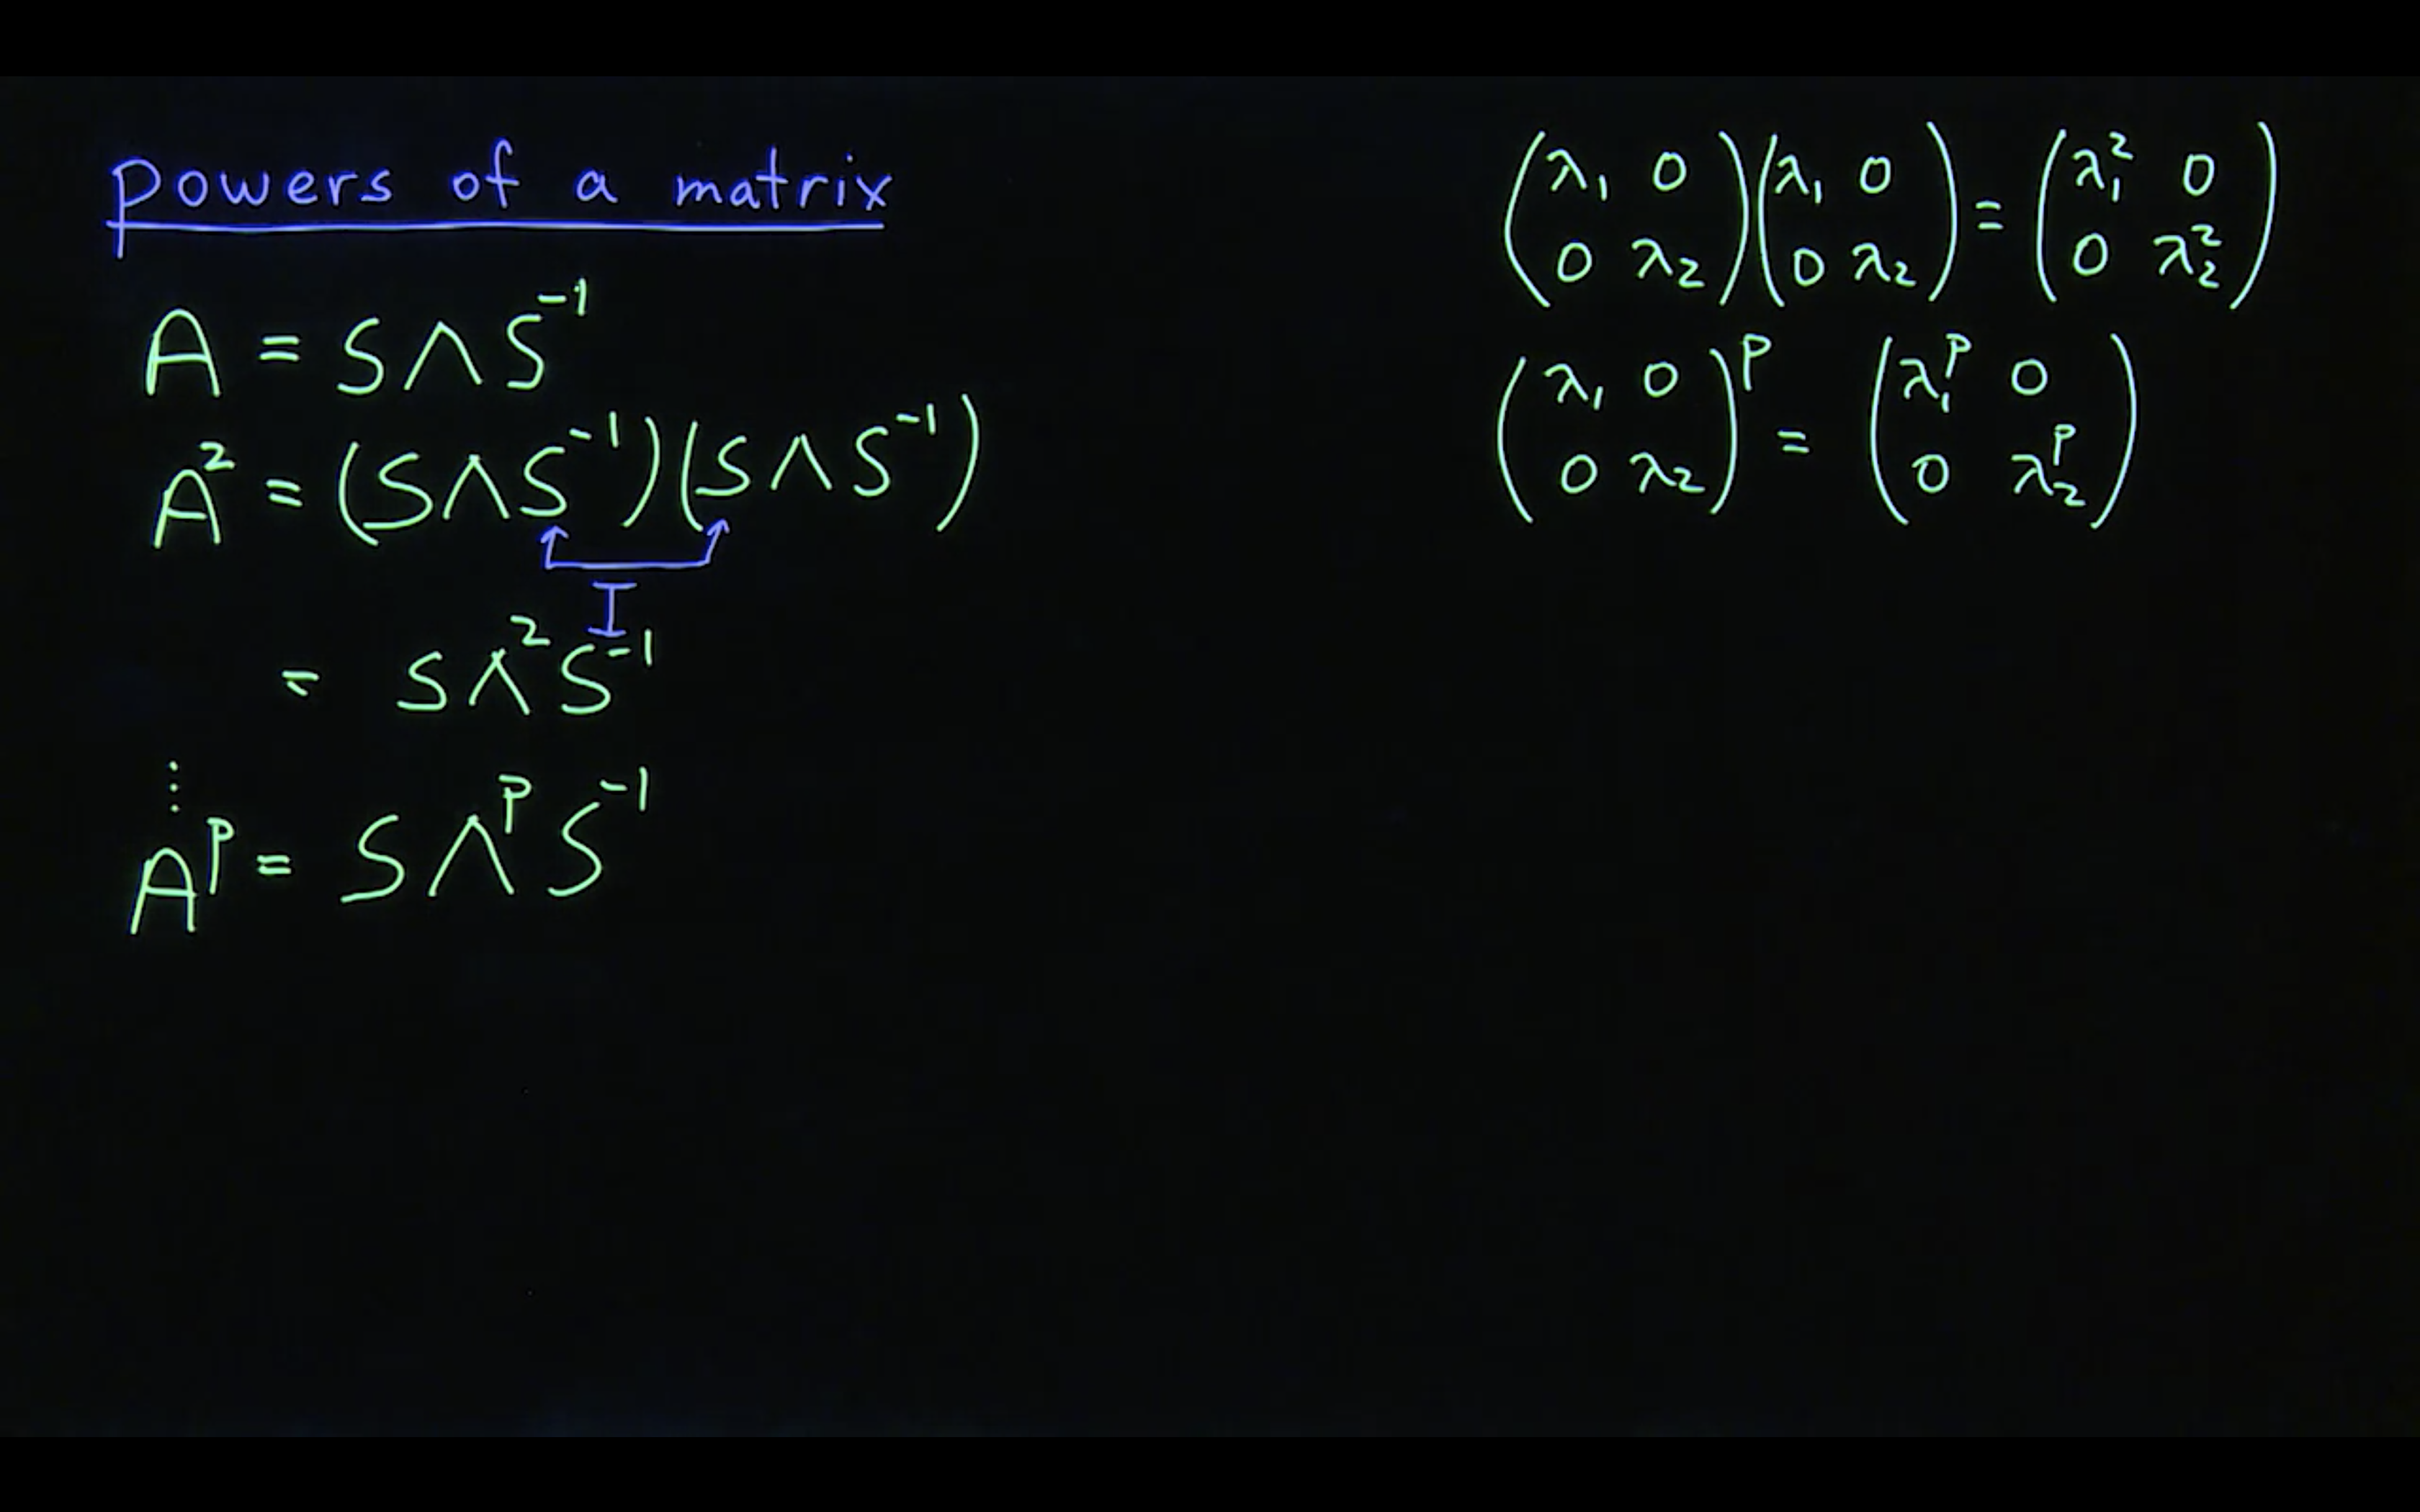 powers of a matrix
A = SΛS⁻¹
A² = (SΛS⁻¹)(SΛS⁻¹)
I
= SΛ²S⁻¹
⋮
Aᵖ = SΛᵖS⁻¹
(λ₁ 0; 0 λ₂)(λ₁ 0; 0 λ₂) = (λ₁² 0; 0 λ₂²)
(λ₁ 0; 0 λ₂)ᵖ = (λ₁ᵖ 0; 0 λ₂ᵖ)